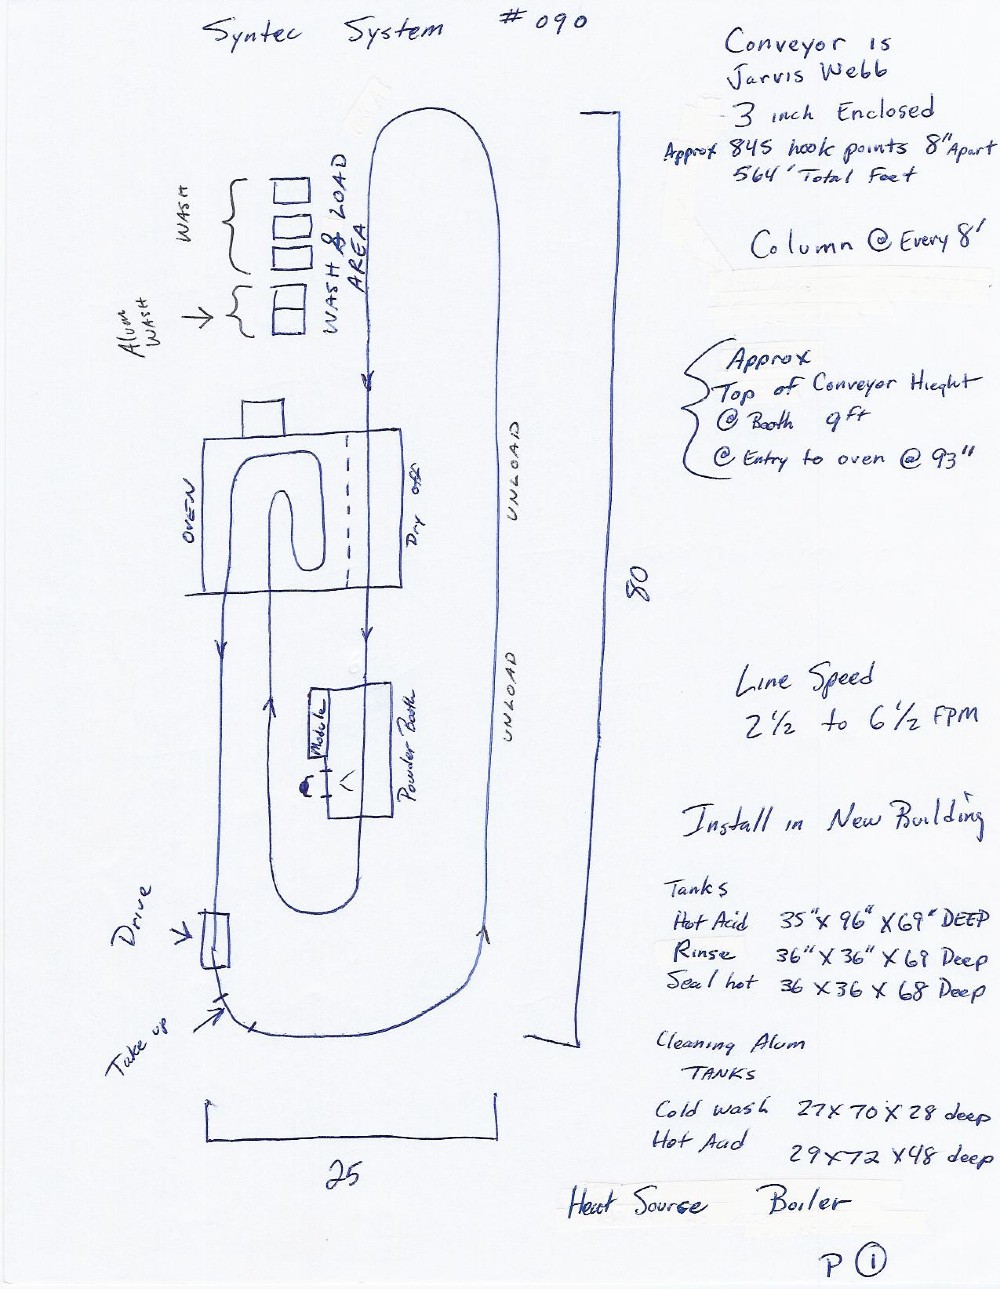 Syntec System # 090
Conveyor is
Jarvis Webb
3 inch Enclosed
Approx 845 hook points 8" Apart
564' Total Feet
Column @ Every 8'
WASH
Alum
WASH
WASH & LOAD
AREA
Approx
Top of Conveyor Hieght
@ Booth 9ft
@ Entry to oven @ 93"
OVEN
Dry off
UNLOAD
80
UNLOAD
Module
Powder Booth
Line Speed
2 1/2 to 6 1/2 FPM
Install in New Building
Drive
Take up
Tanks
Hot Acid 35" X 96" X 69" DEEP
Rinse 36" X 36" X 69 Deep
Seal hot 36 X 36 X 68 Deep
Cleaning Alum
TANKS
Cold wash 27 X 70 X 28 deep
Hot Acid
29 X 72 X 48 deep
25
Heat Sourse Boiler
P 1